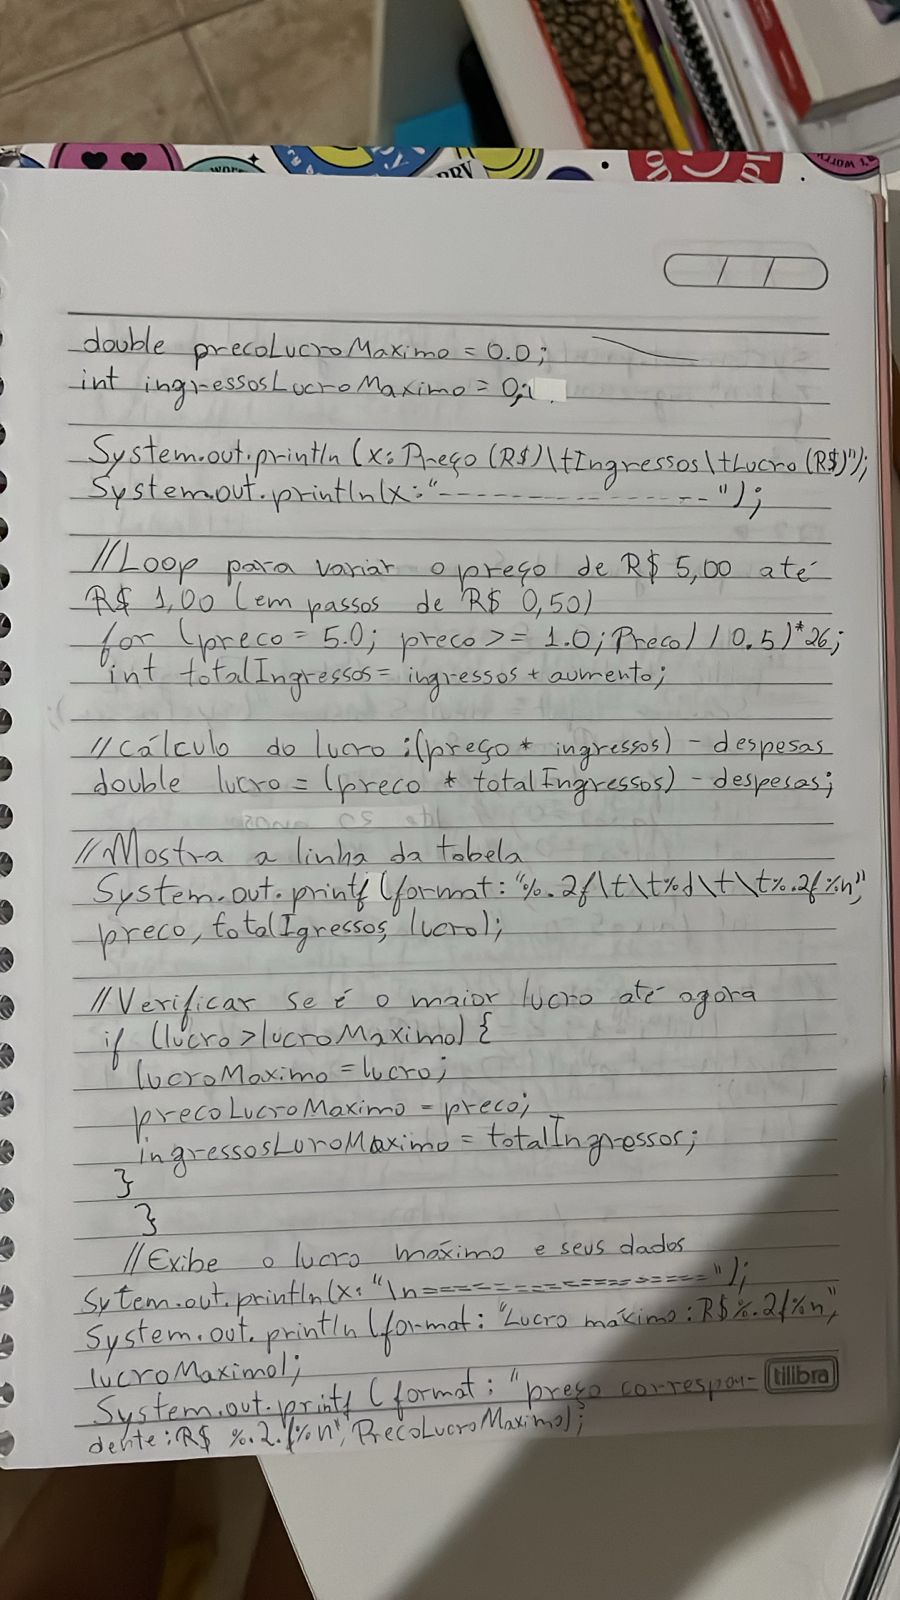 double precoLucroMaximo = 0.0;
int ingressosLucroMaximo = 0;
System.out.println (x: Preço (R$)\tIngressos\tLucro (R$)");
System.out.println(x:"- - - - - - - - - - - - - - - - -");
//Loop para variar o preço de R$ 5,00 até
R$ 1,00 (em passos de R$ 0,50)
for (preco = 5.0; preco >= 1.0; Preco) / 0.5)*26;
int totalIngressos = ingressos + aumento;
//Cálculo do lucro :(preço * ingressos) - despesas
double lucro = (preco * totalIngressos) - despesas;
//Mostra a linha da tabela
System.out.printf (format: "%.2f\t\t%d\t\t%.2f%n",
preco, totalIgressos, lucro);
//Verificar se é o maior lucro até agora
if (lucro > lucroMaximo) {
lucroMaximo = lucro;
precoLucroMaximo = preco;
ingressosLuroMaximo = totalIngressos;
}
}
//Exibe o lucro máximo e seus dados
Sytem.out.println(x: "\n====================");
System.out.println (format: "Lucro máximo: R$%.2f%n",
lucroMaximo);
System.out.printf (format: "preço correspon-
dente: R$ %.2.f%n", PrecoLucroMaximo);
tilibra